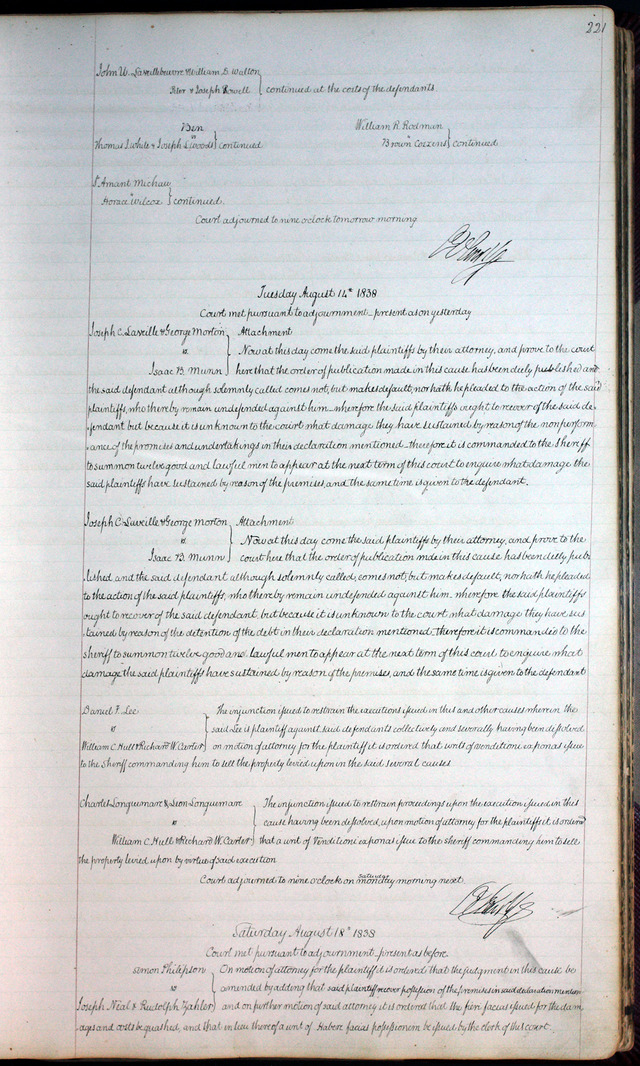 221
John W. Lavillebeuvre & William D. Walton
Peter & Joseph Powell } continued at the costs of the defendants.
Ben
vs
Thomas J. White & Joseph L. Woods } continued
William R. Rodman
vs
Brown Cozzens } continued
St. Amant Michau
vs
Horace Wilcox } continued.
Court adjourned to nine oclock tomorrow morning
Tuesday August 14th 1838
Court met pursuant to adjournment present as on yesterday
Joseph C. Laville & George Morton } Attachment
vs Now at this day come the said plaintiffs by their attorney, and prove to the court
Isaac B. Munn here that the order of publication made in this cause has been duly published and
the said defendant although solemnly called comes not, but makes default, nor hath he pleaded to the action of the said
plaintiffs, who thereby remain undefended against him wherefore the said plaintiffs ought to recover of the said de-
fendant but because it is unknown to the court what damage they have sustained by reason of the nonperform
ance of the promises and undertakings in their declaration mentioned therefore it is commanded to the Sheriff
to summon twelve good and lawful men to appear at the next term of this court to enquire what damage the
said plaintiffs have sustained by reason of the premises, and the same time is given to the defendant.
Joseph C. Laville & George Morton } Attachment
vs Now at this day come the said plaintiffs by their attorney, and prove to the
Isaac B. Munn court here that the order of publication made in this cause has been duly pub
lished and the said defendant although solemnly called, comes not, but makes default, nor hath he pleaded
to the action of the said plaintiffs, who thereby remain undefended against him. wherefore the said plaintiffs
ought to recover of the said defendant, but because it is unknown to the court what damage they have sus
tained by reason of the detention of the debt in their declaration mentioned. therefore it is commanded to the
sheriff to summon twelve good and lawful men to appear at the next term of this court to enquire what
damage the said plaintiffs have sustained by reason of the premises, and the same time is given to the defendant
Daniel F. Lee } The injunction issued to restrain the executions issued in this and other causes wherein the
vs said Lee is plaintiff against said defendants collectively and severally having been dissolved
William C. Hull & Richard W. Carter on motion of attorney for the plaintiff it is ordered that writs of venditioni exponas issue
to the Sheriff commanding him to sell the property levied upon in the said several causes
Charles Longuemare & Leon Longuemare } The injunction issued to restrain proceedings upon the execution issued in this
vs cause having been dissolved, upon motion of attorney for the plaintiffs it is ordered
William C. Hull & Richard W. Carter that a writ of Venditioni exponas issue to the sheriff commanding him to sell
the property levied upon by virtue of said execution
Court adjourned to nine oclock on monday Saturday morning next.
Saturday August 18th 1838
Court met pursuant to adjournment present as before.
Simon Philipson } On motion of attorney for the plaintiff it is ordered that the judgment in this cause be
vs amended by adding that said plaintiff recover possession of the premises in said declaration mention
Joseph Neal & Rudolph Zahler and on further motion of said attorney it is ordered that the fieri facias issued for the dam
ages and costs be quashed, and that in lieu thereof a writ of Habere facias possessionem be issued by the clerk of this court.